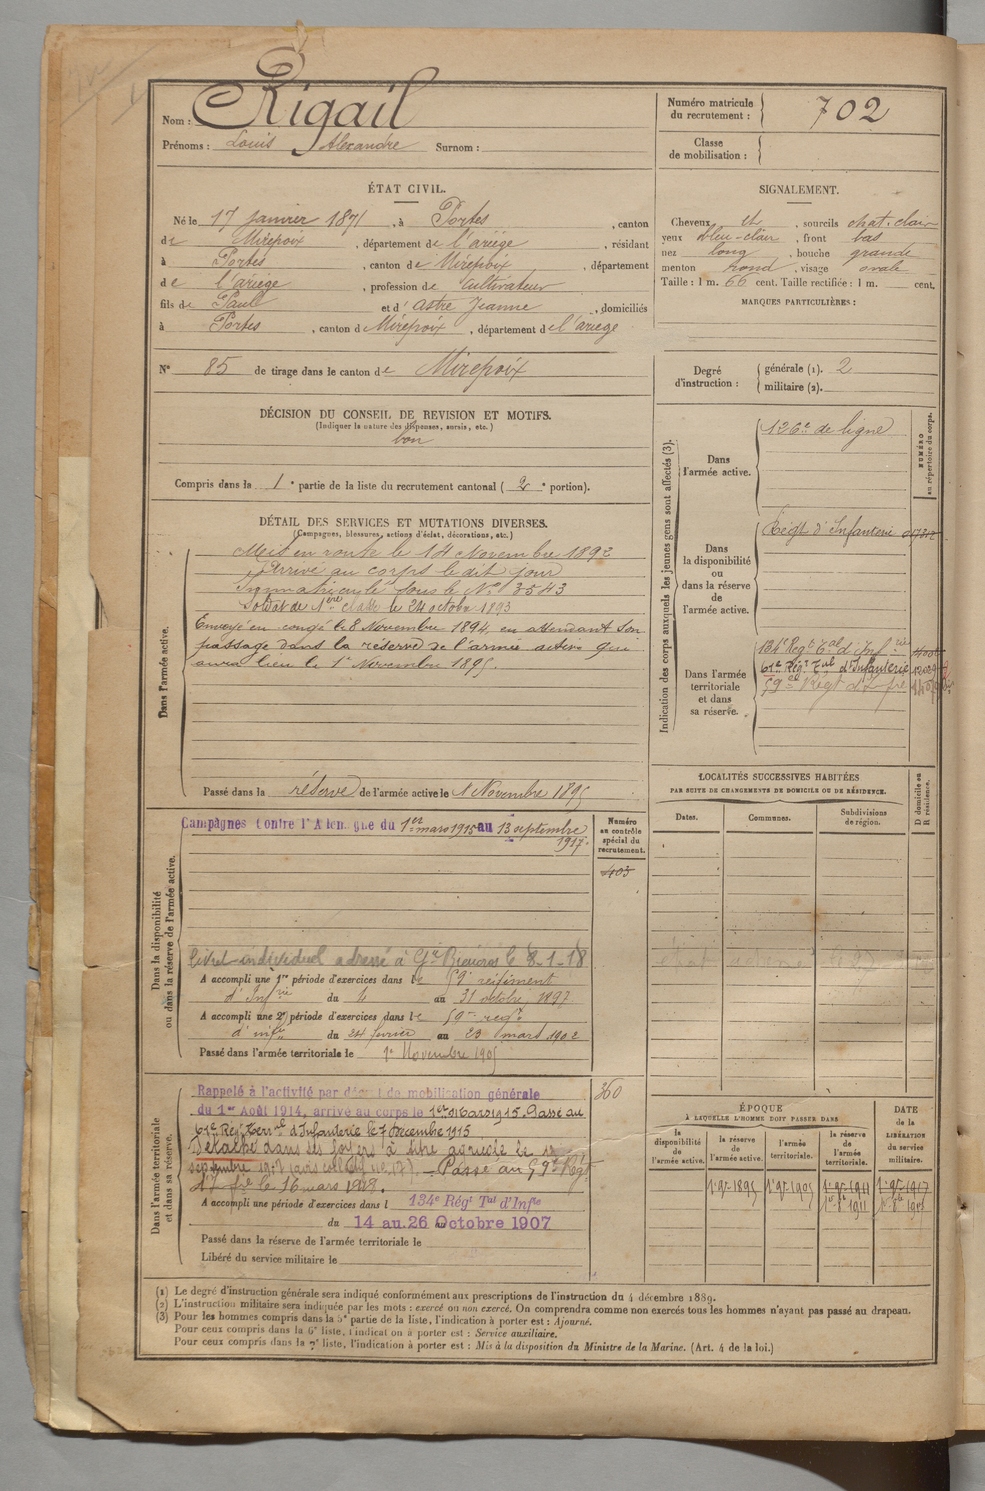 Nom : Rigail
Prénoms : Louis Alexandre Surnom :
Numéro matricule du recrutement : 702
Classe de mobilisation :
ÉTAT CIVIL.
Né le 17 janvier 1871, à Portes, canton
de Mirepoix, département de l'ariège, résidant
à Portes, canton de Mirepoix, département
de l'ariège, profession de Cultivateur
fils de Paul et d'astre Jeanne, domiciliés
à Portes, canton de Mirepoix, département de l'ariege
SIGNALEMENT.
Cheveux ch, sourcils chat. clair
yeux bleu-clair, front bas
nez long, bouche grande
menton rond, visage ovale
Taille : 1 m. 66 cent. Taille rectifiée : 1 m. cent.
MARQUES PARTICULIÈRES :
N° 85 de tirage dans le canton de Mirepoix
Degré d'instruction : générale (1). 2
militaire (2).
DÉCISION DU CONSEIL DE REVISION ET MOTIFS.
(Indiquer la nature des dispenses, sursis, etc.)
bon
Compris dans la 1e partie de la liste du recrutement cantonal (2e portion).
DÉTAIL DES SERVICES ET MUTATIONS DIVERSES.
(Campagnes, blessures, actions d'éclat, décorations, etc.)
Dans l'armée active.
Mis en route le 14 Novembre 1892
Arrivé au corps le dit jour
Immatriculé sous le No 3543
Soldat de 1ère classe le 24 octobre 1893
Envoyé en congé le 8 Novembre 1894, en attendant son
passage dans la réserve de l'armée active qui
aura lieu le 1er Novembre 1895.
Passé dans la réserve de l'armée active le 1 Novembre 1895
Indication des corps auxquels les jeunes gens sont affectés (3).
NUMÉRO au répertoire du corps.
Dans l'armée active.
126e de ligne
Dans la disponibilité ou dans la réserve de l'armée active.
Régt d'Infanterie
Dans l'armée territoriale et dans sa réserve.
134e Régt Tal d'Infrie
61e Régt Tal d'Infanterie
59e Régt d'Infie
LOCALITÉS SUCCESSIVES HABITÉES
PAR SUITE DE CHANGEMENTS DE DOMICILE OU DE RÉSIDENCE.
Dates. Communes. Subdivisions de région. D domicile ou R résidence.
Dans la disponibilité ou dans la réserve de l'armée active.
Campagnes Contre l'Allemagne du 1er mars 1915 au 13 septembre
1917.
Numéro au contrôle spécial du recrutement.
403
Livret individuel adressé à Gie le 8-1-18
A accompli une 1re période d'exercices dans le 59e régiment
d'Infrie du 4 au 31 octobre 1897
A accompli une 2e période d'exercices dans le 59me regt
d'infie du 24 février au 23 mars 1902
Passé dans l'armée territoriale le 1er Novembre 1905
Dans l'armée territoriale et dans sa réserve.
360
Rappelé à l'activité par décret de mobilisation générale
du 1er Août 1914, arrivé au corps le 1er Mars 1915. Passé au
61e Régt Terral d'Infanterie le 7 Décembre 1915
Détaché dans ses foyers à titre agricole le 13
septembre 1917 (avis collectif no 177). Passé au 59e Régt
d'Infie le 16 mars 1918.
A accompli une période d'exercices dans l 134e Régt Tal d'Infie
du 14 au 26 Octobre 1907
Passé dans la réserve de l'armée territoriale le
Libéré du service militaire le
ÉPOQUE
À LAQUELLE L'HOMME DOIT PASSER DANS
DATE de la LIBÉRATION du service militaire.
la disponibilité de l'armée active. la réserve de l'armée active. l'armée territoriale. la réserve de l'armée territoriale.
1er 9re 1895 1er 9re 1905 1er 9re 1911 1er 9re 1917
1er 8b 1911 1er 8b 1918
(1) Le degré d'instruction générale sera indiqué conformément aux prescriptions de l'instruction du 4 décembre 1889.
(2) L'instruction militaire sera indiquée par les mots : exercé ou non exercé. On comprendra comme non exercés tous les hommes n'ayant pas passé au drapeau.
(3) Pour les hommes compris dans la 5e partie de la liste, l'indication à porter est : Ajourné.
Pour ceux compris dans la 6e liste, l'indication à porter est : Service auxiliaire.
Pour ceux compris dans la 7e liste, l'indication à porter est : Mis à la disposition du Ministre de la Marine. (Art. 4 de la loi.)